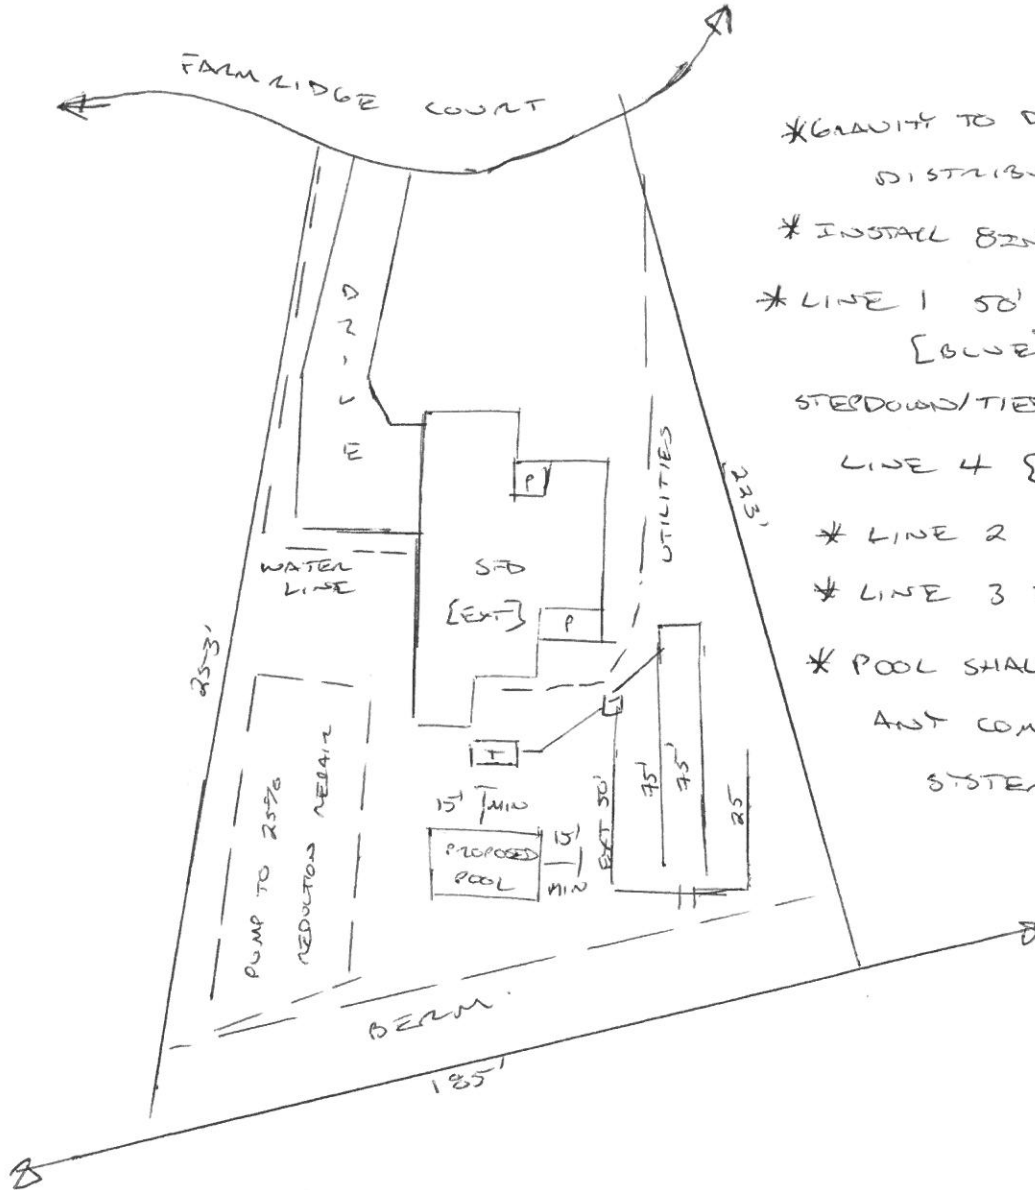 FARMRIDGE COURT
*GRAVITY TO D
DISTRIBU
* INSTALL 8IN
* LINE 1 50'
[BLUE]
STEPDOWN/TIE
LINE 4 [
* LINE 2
* LINE 3
* POOL SHAL
ANY COM
SYSTEM
DRIVE
P
UTILITIES
233'
WATER
LINE
SFD
[EXT]
P
253'
T
PUMP TO 25%
REDUCTION REPAIR
15' MIN
PROPOSED
POOL
15'
MIN
EXT 50'
75'
75'
25
BERM.
185'